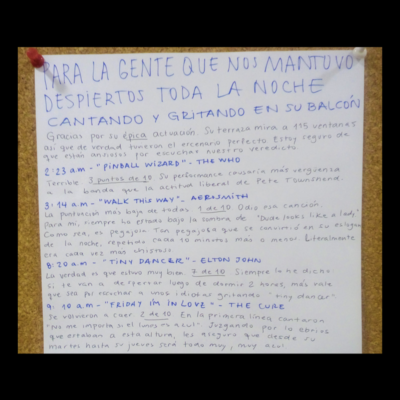 PARA LA GENTE QUE NOS MANTUVO
DESPIERTOS TODA LA NOCHE
CANTANDO Y GRITANDO EN SU BALCÓN
Gracias por su épica actuación. Su terraza mira a 115 ventanas
así que de verdad tuvieron el escenario perfecto. Estoy seguro de
que están ansiosos por escuchar nuestro veredicto
2:23 a.m - "PINBALL WIZARD" - THE WHO
Terrible 3 puntos de 10. Su performance causaría más vergüenza
a la banda que la actitud liberal de Pete Townshend.
3:14 a.m - "WALK THIS WAY" - AEROSMITH
La puntuación más baja de todas 1 de 10 Odio esa canción
Para mí, siempre ha estado bajo la sombra de "Dude looks like a lady"
Como sea, es pegajosa. Tan pegajosa que se convirtió en su eslogan
de la noche, repetido cada 10 minutos más o menos. Literalmente
era cada vez más
8:20 a.m - "TINY DANCER" - ELTON JOHN
La verdad es que estuvo muy bien. 7 de 10. Siempre he dicho
si te van a despertar luego de dormir 2 horas, más vale
que sea por escuchar a unos idiotas gritando "tiny dancer"
9:10 a.m - "FRIDAY I'M IN LOVE" - THE CURE
Se volvieron a caer. 2 de 10 En la primera línea cantaron
"No me importa si el lunes es azul". Juzgando por lo ebrios
que estaban a esta altura, les aseguro que desde su
martes hasta su jueves será todo muy, muy azul.